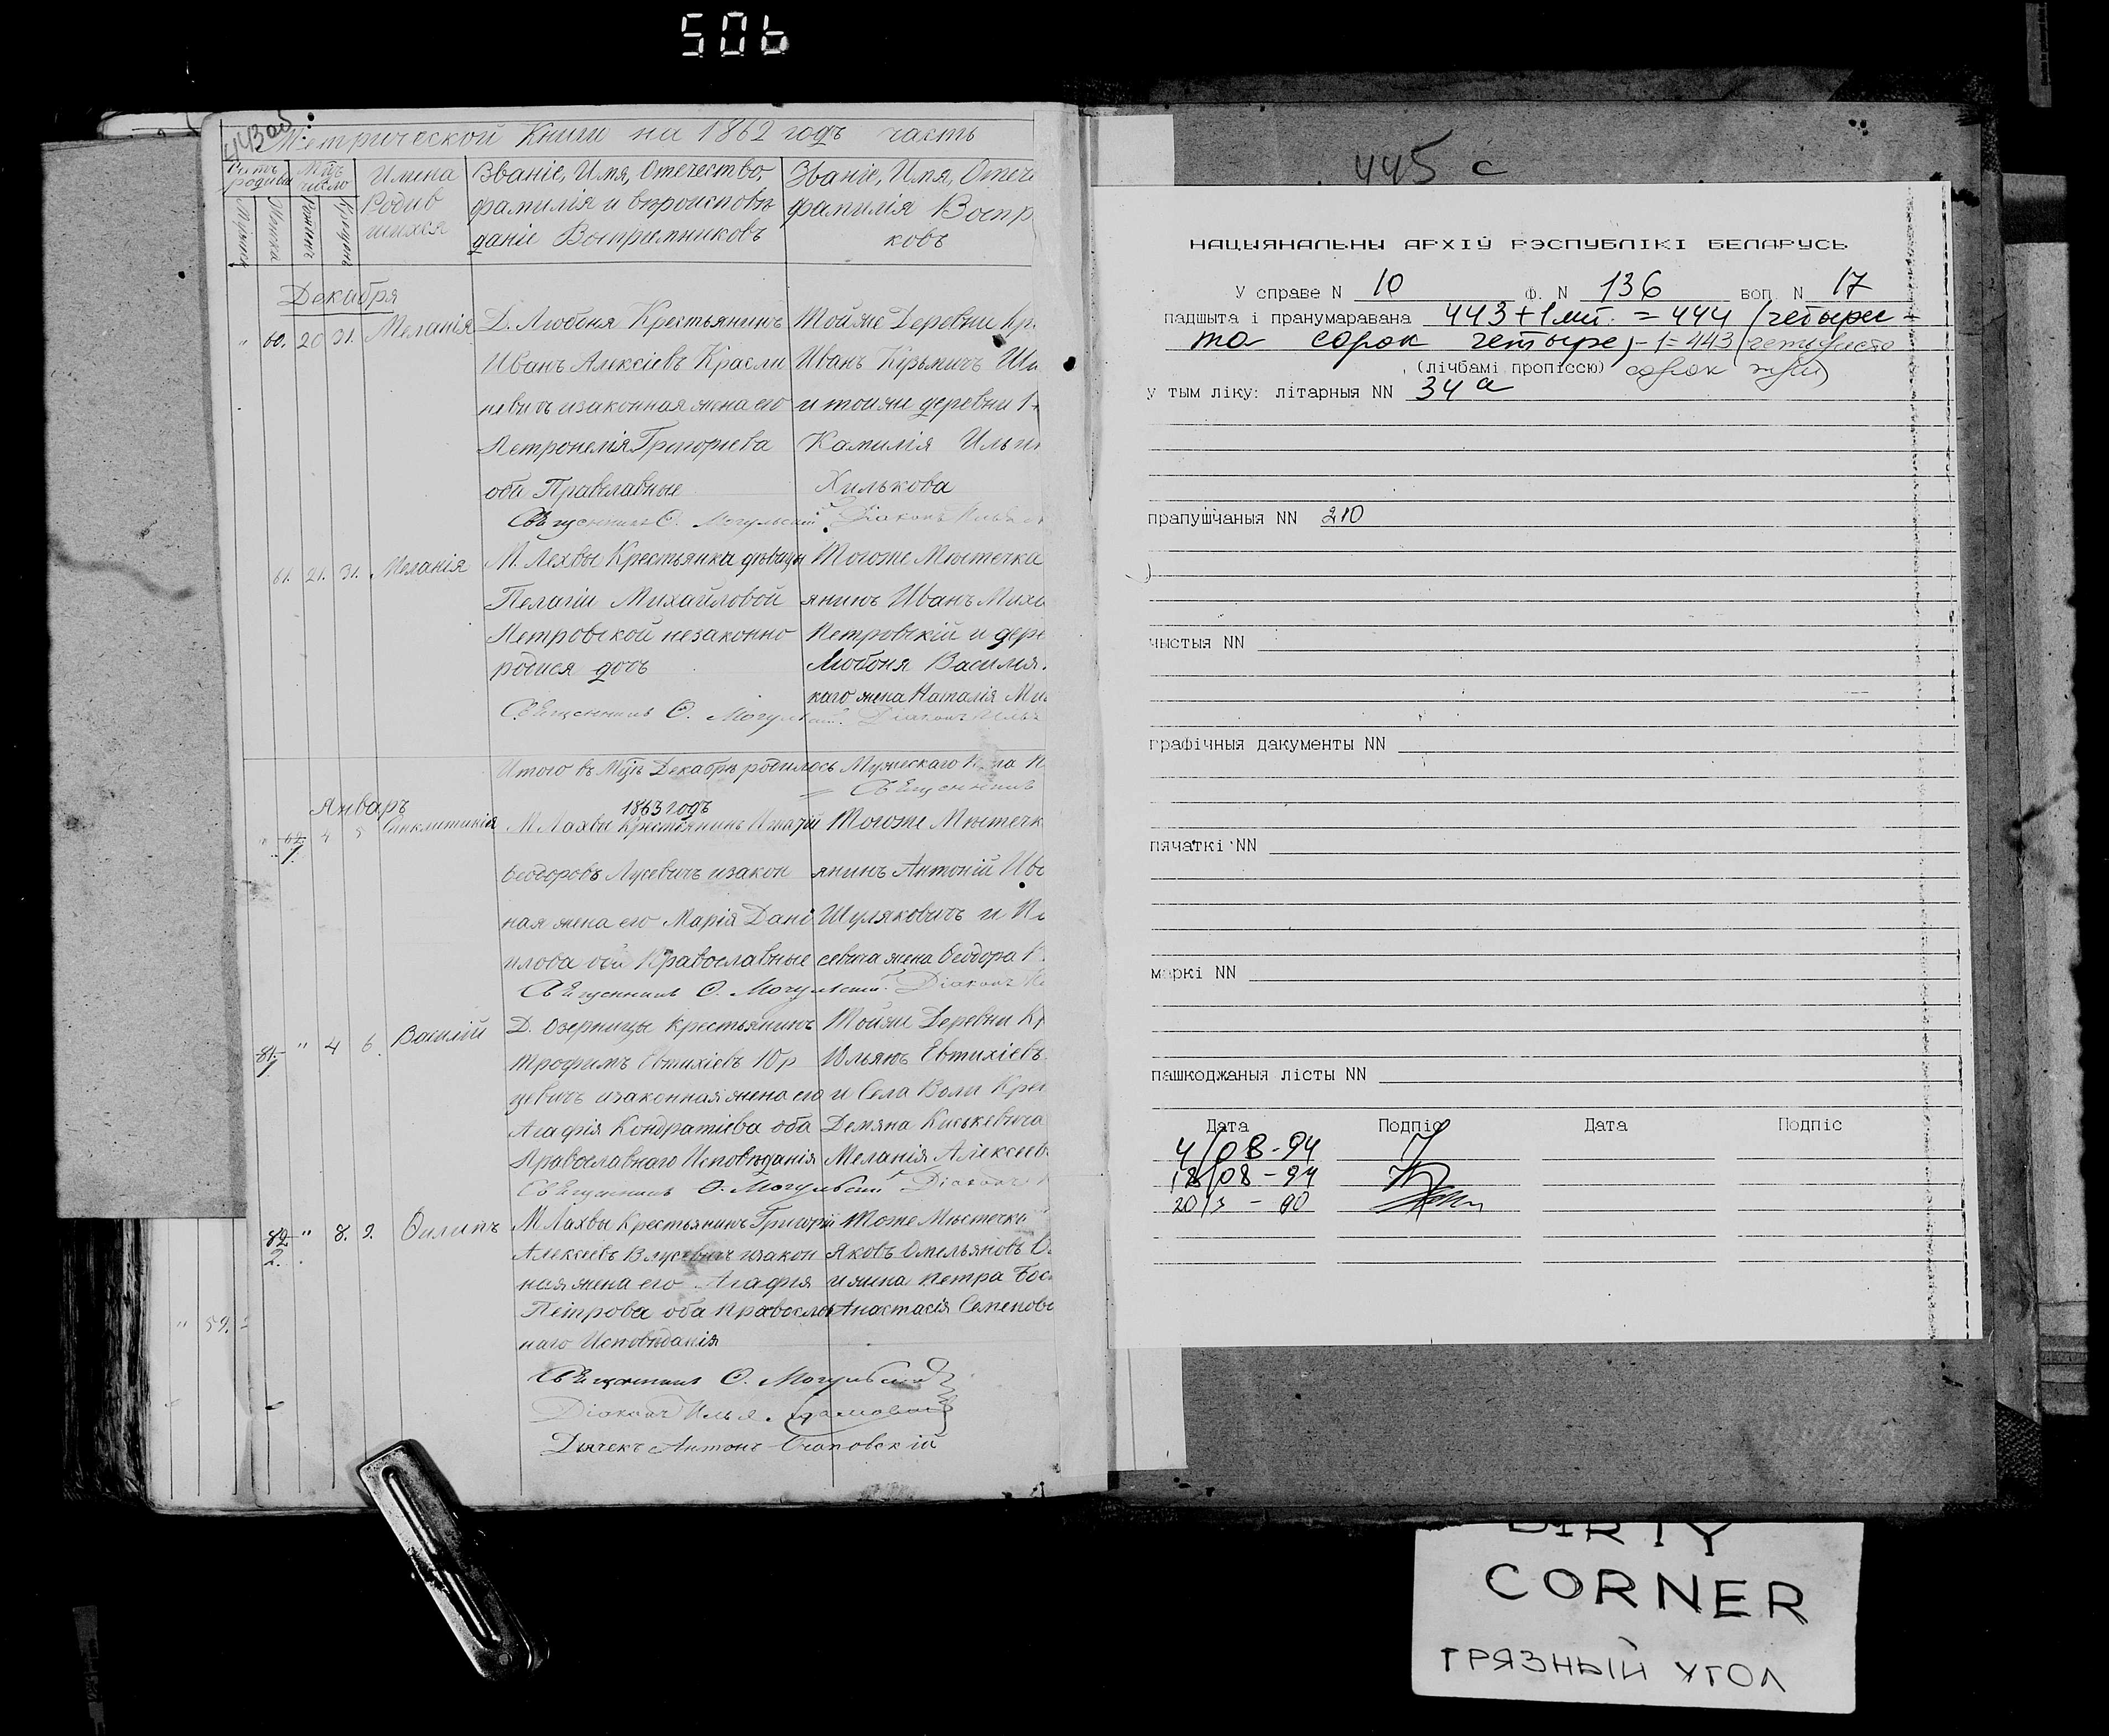 506
443 об
Метрической Книги на 1862 годъ часть
Счетъ родивш
Мцъ число
Имена Родив шихся
Званіе, Имя, Отечество фамилія и вѣроисповѣ даніе Воспріемниковъ
Званіе, Имя, Отеч фамилія Воспр ковъ
Мужеска
Женска
Рожденъ
Крещенъ
Декабря
" 60. 20 31. Меланія
Д. Любоня Крестьянинъ
Иванъ Алексіевъ Красли
невичъ изаконная жена его
Петронелія Григориева
оба Православные
Тойже Деревни Кр
Иванъ Кузьмичъ
и тойже деревни
Камилія Ильи
Хилькова
Священникъ О. Могульскій Діаконъ Илья
61. 21. 31. Меланія
М. Лахвы Крестьянка дѣвицы
Пелагіи Михайловой
Петровской незаконно
родися дочь
Тогоже Мѣстечка
янинъ Иванъ Миха
Петровскій и дере
Любоня Василія
каго жена Наталія Ми
Священникъ О. Могульскій. Діаконъ Илья
Итого въ Мцѣ Декабрѣ родилось Мужескаго
Священникъ
Январь
1863 годъ
" 62. 1. 4 5 Синклитикія
М Лахвы Крестьянинъ Игнатій
Ѳеодоровъ Лусевичъ изакон
ная жена его Марія Дані
илова оба Православные
Тогоже Мѣстечк
янинъ Антоній Ив
Шуляковичъ и
севича жена Ѳеодора
Священникъ О. Могульскій. Діаконъ
81. 1 " 4 6. Василій
Д. Озерницы крестьянинъ
Трофимъ Евтихіевъ Юр
цевичъ изаконная жена его
Агафія Кондратіева оба
Православнаго Исповѣданія
Тойже Деревни Кр
Ульянъ Евтихіевъ
и Села Воли Крес
Демяна Киськевича
Меланія Алексеев
Священникъ О. Могульскій Діаконъ
82 2. " 8. 9. Филипъ
М Лахвы Крестьянинъ Григорій
Алексіевъ Влусевичъ изакон
ная жена его Агафія
Петрова оба Православ
наго Исповѣданія
Тоже Мѣстечка
Яковъ Омельяновъ
и жена Петра
Анастасія Семенова
Священникъ О. Могульскій
Діаконъ Илья
Дьячекъ Антонъ Осаповскій
" 59.
445 с
НАЦЫЯНАЛЬНЫ АРХІЎ РЭСПУБЛІКІ БЕЛАРУСЬ
У справе N 10 Ф. N 136 воп. N 17
падшыта і пранумаравана 443 + 1 лит. = 444 (четыре-
та сорок четыре) - 1 = 443 (четыреста
(лічбамі пропіссю) сорок три)
у тым ліку: літарныя NN 34 а
прапушчаныя NN 210
чыстыя NN
графічныя дакументы NN
пячаткі NN
маркі NN
пашкоджаныя лісты NN
Дата Подпіс Дата Подпіс
4/08-94
18/08-94
20/3 - 00
DIRTY
CORNER
ГРЯЗНЫЙ УГОЛ